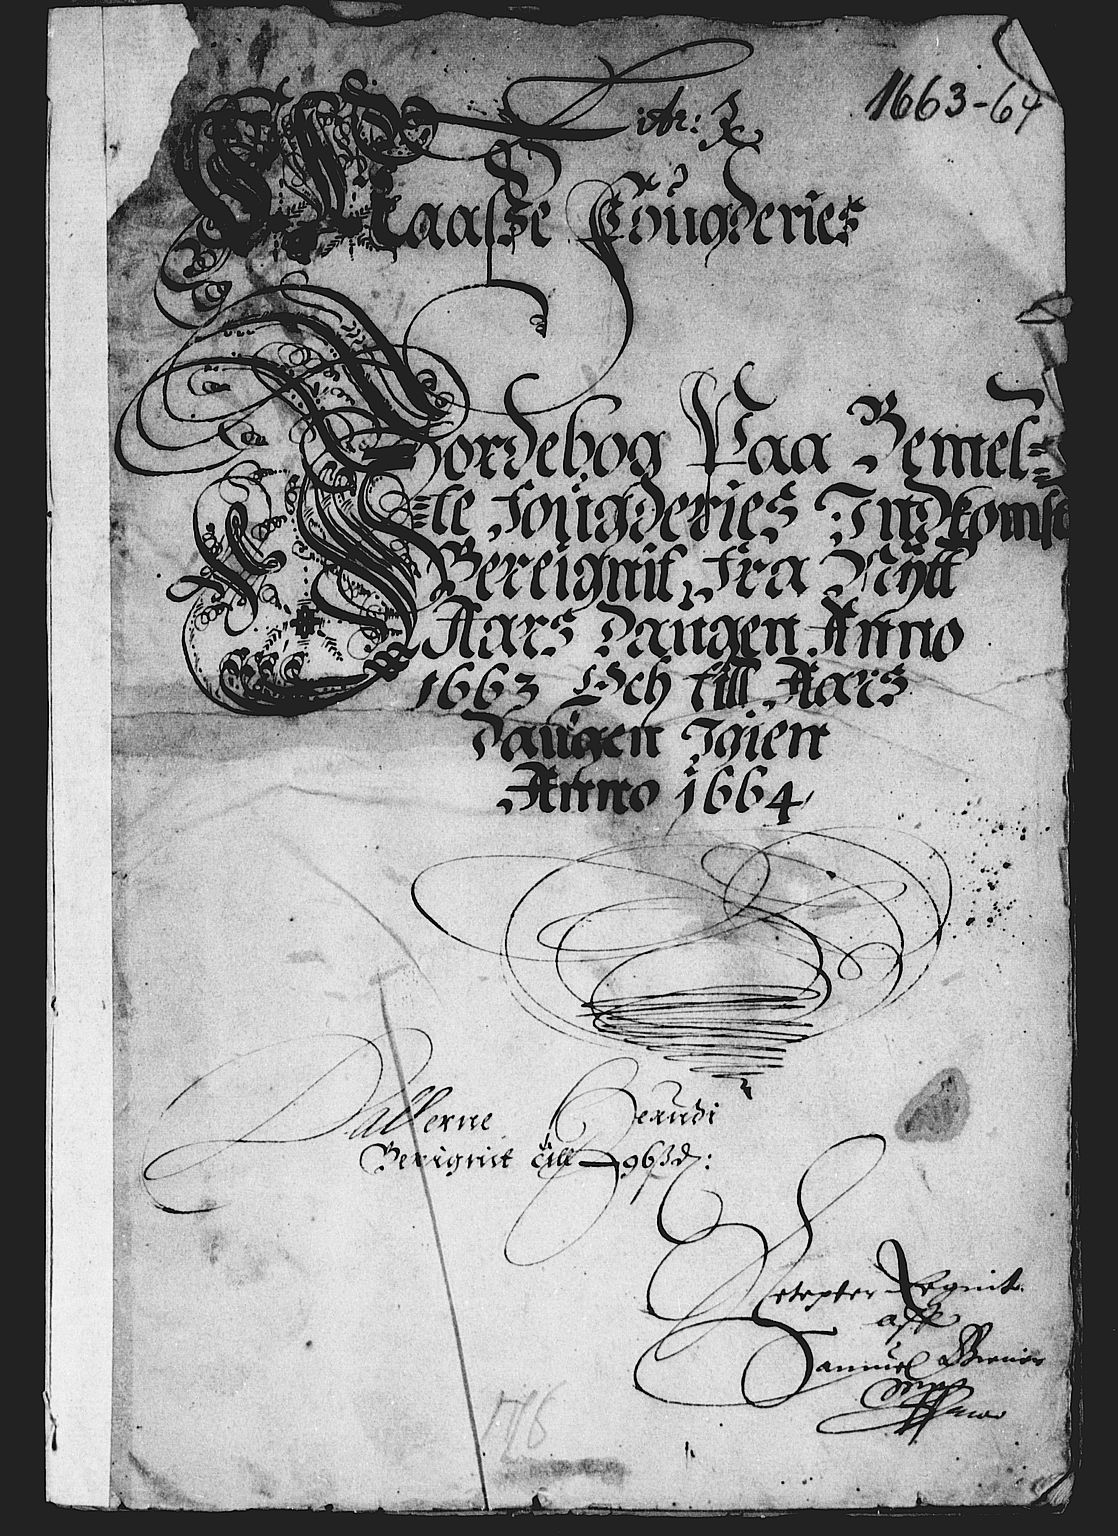 1663-64
Litr: X
Maasse Fougderies
Jordebog Paa Bemel-
te fougderies Indkomst
Bereignit, fra Nÿtt
Aars daugen Anno
1663 Och till Aars
daugen Igien
Anno 1664
Dallerne
Berignit till 96 ß dr:
efter Regnit
aff
Samuel